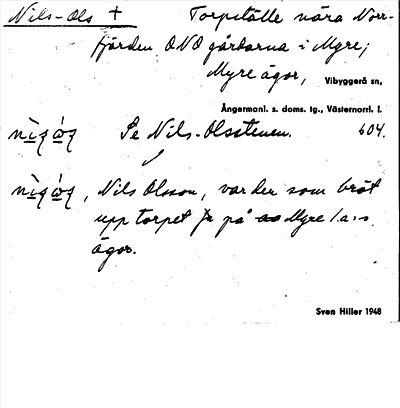 Nils-Ols + Torpställe nära Norr-
fjärden ONO gårdarna i Myre;
Myre ägor, Vibyggerå sn,
Ångermanl. s. doms. tg., Västernorrl. l.
Se Nils-Olsstenen. 604.
Nils Olsson, var den som bröt
upp torpet på Myre
ägor.
Sven Hiller 1948